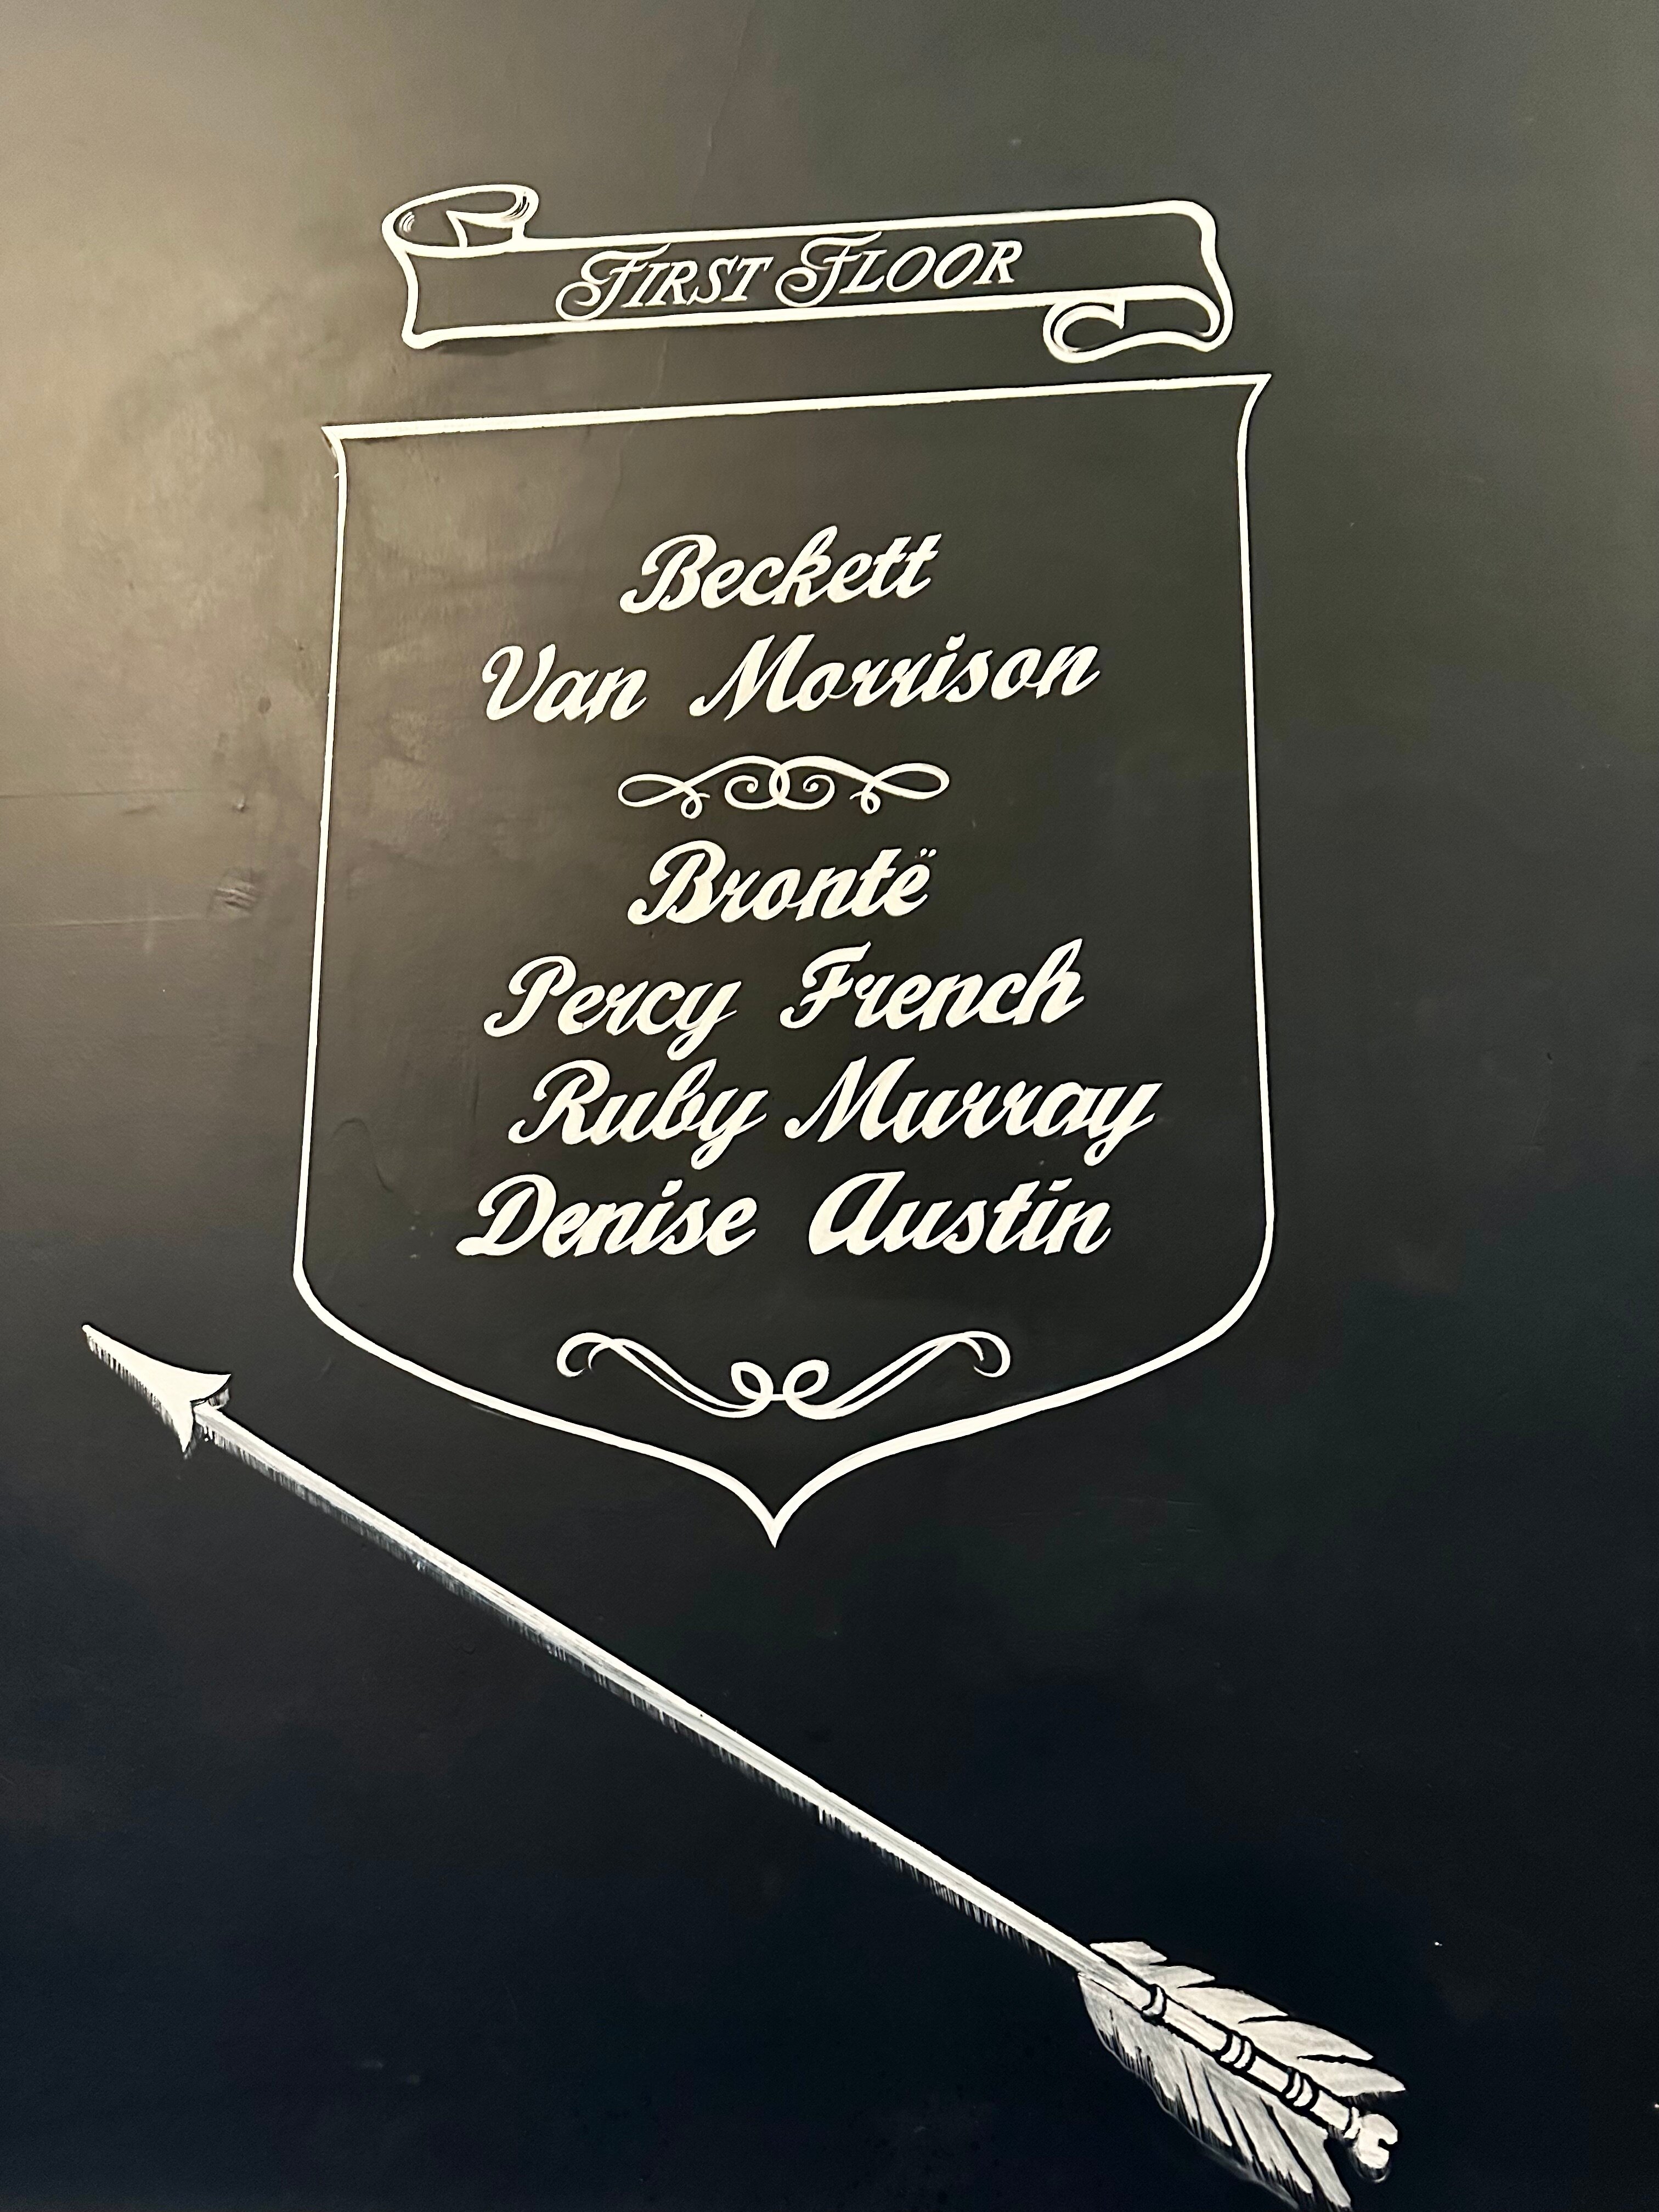 FIRST FLOOR
Beckett
Van Morrison
Brontë
Percy French
Ruby Murray
Denise Austin